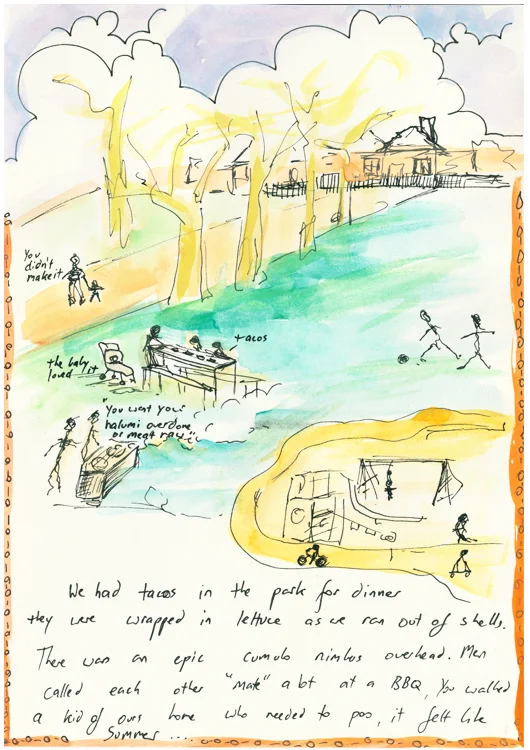 You
didn't
make it
tacos
the baby
loved it
"You want your
halumi overdone
or meat raw"
We had tacos in the park for dinner
they were wrapped in lettuce as we ran out of shells.
There was an epic cumulo nimbus overhead. Men
called each other "mate" a lot at a BBQ, You walked
a kid of ours home who needed to poo, it felt like
Summer ....